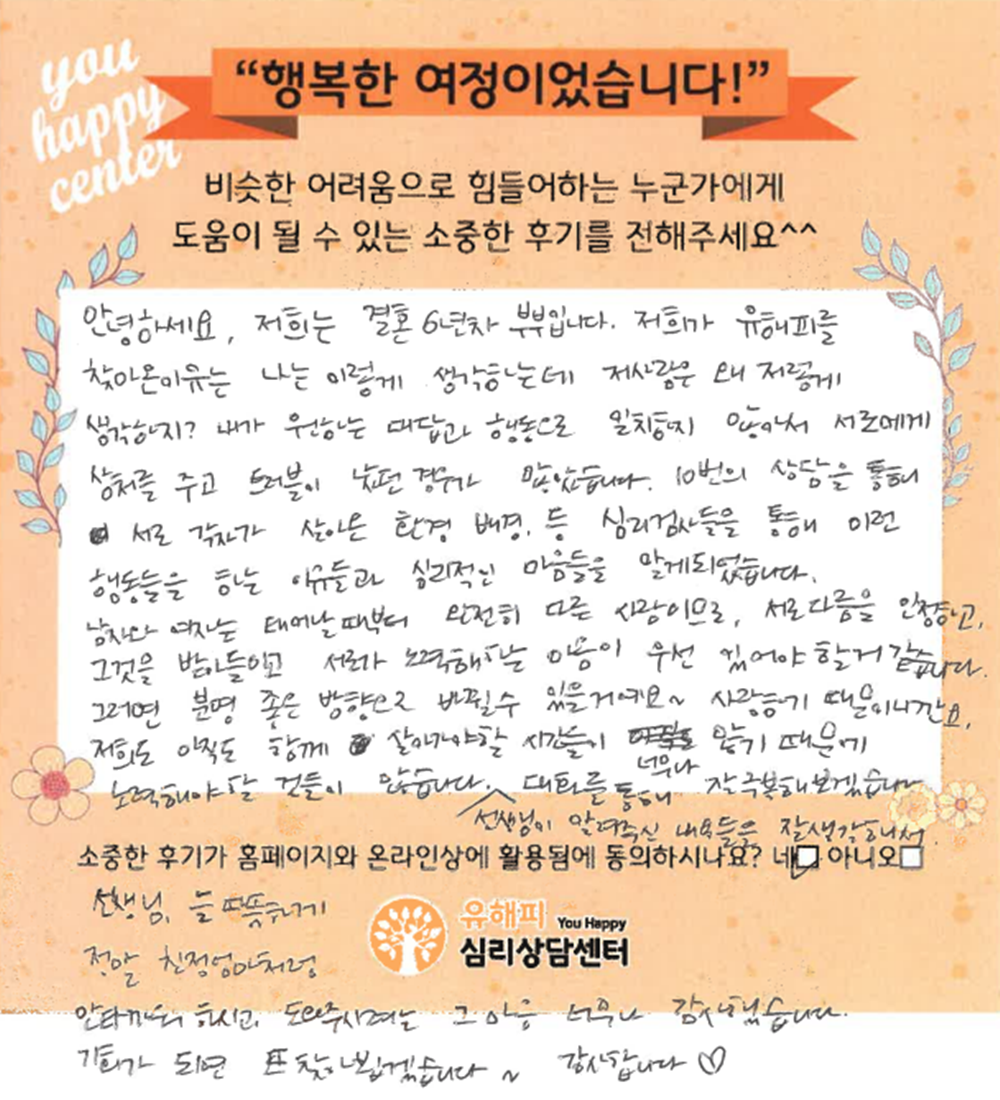 you
happy
center
“행복한 여정이었습니다!”
비슷한 어려움으로 힘들어하는 누군가에게
도움이 될 수 있는 소중한 후기를 전해주세요^^
안녕하세요, 저희는 결혼 6년차 부부입니다. 저희가 유해피를
찾아온이유는 나는 이렇게 생각하는데 저사람은 왜 저렇게
생각하지? 내가 원하는 대답과 행동으로 일치하지 않아서 서로에게
상처를 주고 트러블이 났던 경우가 많았습니다. 10번의 상담을 통해
서로 각자가 살아온 환경 배경. 등 심리검사들을 통해 이런
행동들을 하는 이유들과 심리적인 마음들을 알게되었습니다.
남자와 여자는 태어날때부터 완전히 다른 사람이므로, 서로다름을 인정하고,
그것을 받아들이고 서로가 노력해하는 마음이 우선 있어야 할거 같습니다.
그러면 분명 좋은 방향으로 바뀔수 있을거예요~ 사랑하기 때문이니깐요,
저희도 아직도 함께 살아가야할 시간들이 너무나 많기 때문에
노력해야할 것들이 많습니다. 선생님이 알려주신 내용들을 잘생각해서 대화를 통해 잘극복해보겠습니다
소중한 후기가 홈페이지와 온라인상에 활용됨에 동의하시나요? 네 아니오
선생님, 늘 따뜻하게
정말 친정엄마처럼
안타까워 하시고, 도와주시려는 그 마음 너무나 감사했습니다.
기회가 되면 또 찾아뵙겠습니다 ~ 감사합니다 ♡
유해피 You Happy
심리상담센터